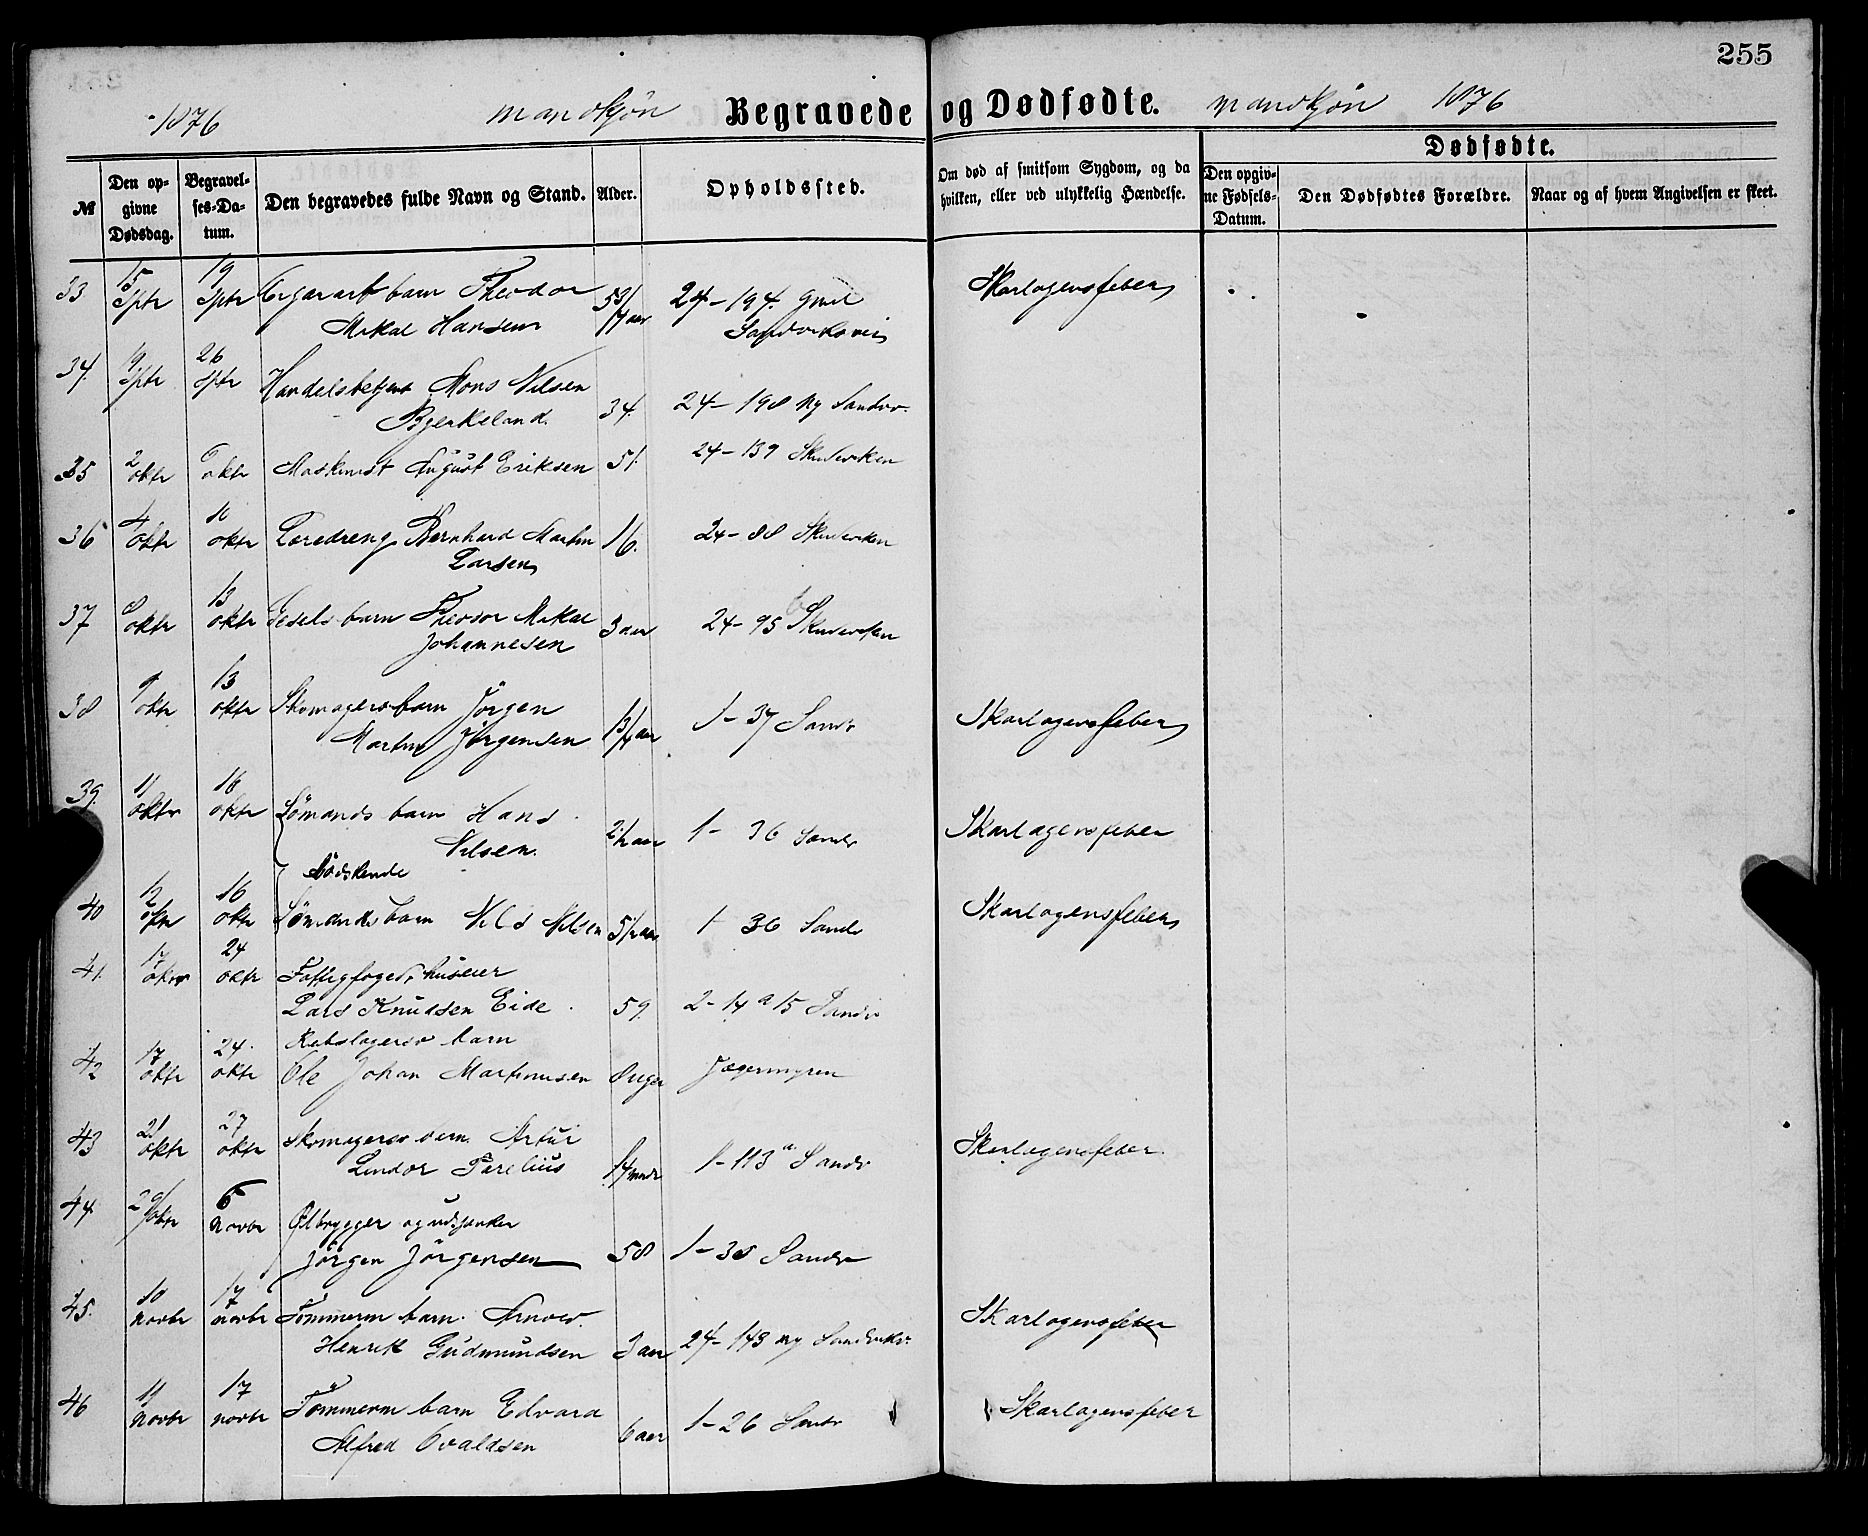 255
1876 mandkjøn Begravede og Dødfødte. mandkjøn 1876
№
Den opgivne Dødsdag.
Begravelses-Datum.
Den begravedes fulde Navn og Stand.
Alder.
Opholdssted.
Om død af smitsom Sygdom, og da hvilken, eller ved ulykkelig Hændelse.
Dødfødte.
Den opgivne Fødsels-Datum.
Den Dødfødtes Forældre.
Naar og af hvem Angivelsen er skeet.
33 15 Sptr 19 Sptr barn Theodor 24-194. Skarlagensfeber
Mikal Hansen
34. 19 Sptr 26 Sptr Handelsbetjent Mons Nilsen
Bjerkeland. 34. 24-198 Ny Sandv.
35 2 oktr 6 oktr Maskinist August Eriksen 51. 24-139 Skuteviken
36 4 oktr 10 oktr Læredreng Bernhard Martin 16. 24-88 Skuteviken
Larsen
37 8 oktr 13 oktr barn Theodor Mikal 3 aar 24-95 b Skuteviken
Johannesen
38 9 oktr 13 oktr Skomagers barn Jörgen
Martin Jörgensen 1 3/4 aar 1-37 Sandv Skarlagensfeber
39. 11 oktr 16 oktr Sömands barn Hans
Nilsen. 2 1/2 aar 1-36 Sandv Skarlagensfeber
Södskende
40 12 oktr 16 oktr Sömands barn Nils Nilsen 5 1/2 aar 1-36 Sandv Skarlagensfeber
41. 17 oktr 24 oktr Fattigfoged, huseier
Lars Knudsen Eide. 59. 2-14 a 15 Sandv
42 17 oktr 24. oktr Rebslagers barn
Ole Johan Martinusen 8 uger Jægermyren
43 21 oktr 27 oktr Skomagers barn Artur
Lindor Parelius 14 mndr 1-113 a Sandv Skarlagensfeber.
44 29 oktr 6 Novbr Ølbrygger og udskjenker
Jörgen Jörgensen 58 1-38 Sandv
45. 10 novbr 17 novbr Tömmerm barn. Arnold.
Henrik Gudmundsen 3 aar 24-143 ny Sandviksv. Skarlagensfeber
46 11 novbr 17 novbr Tömmerm barn Edvard
Alfred Ovaldsen 6 aar 1-26 Sandv Skarlagensfeber